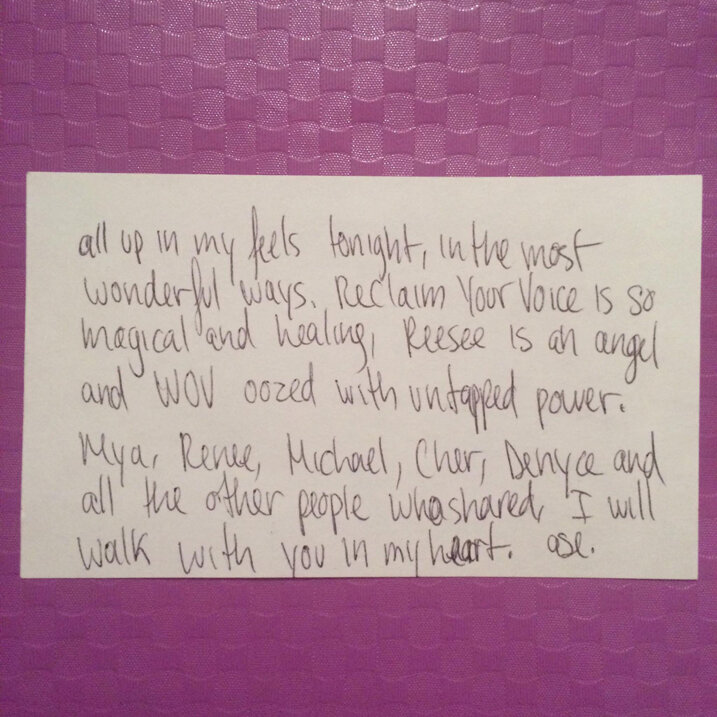 all up in my feels tonight, in the most
wonderful ways. Reclaim Your Voice is so
magical and healing, Reesee is an angel
and WOV oozed with untapped power.
Mya, Renee, Michael, Cher, Denyce and
all the other people who shared, I will
walk with you in my heart. ase.